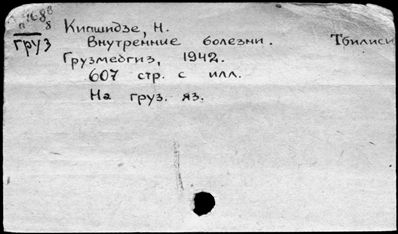 Кипшидзе, Н.
груз
Внутренние болезни. Тбилиси
Грузмедгиз, 1942.
607 стр. с илл.
На груз. яз.